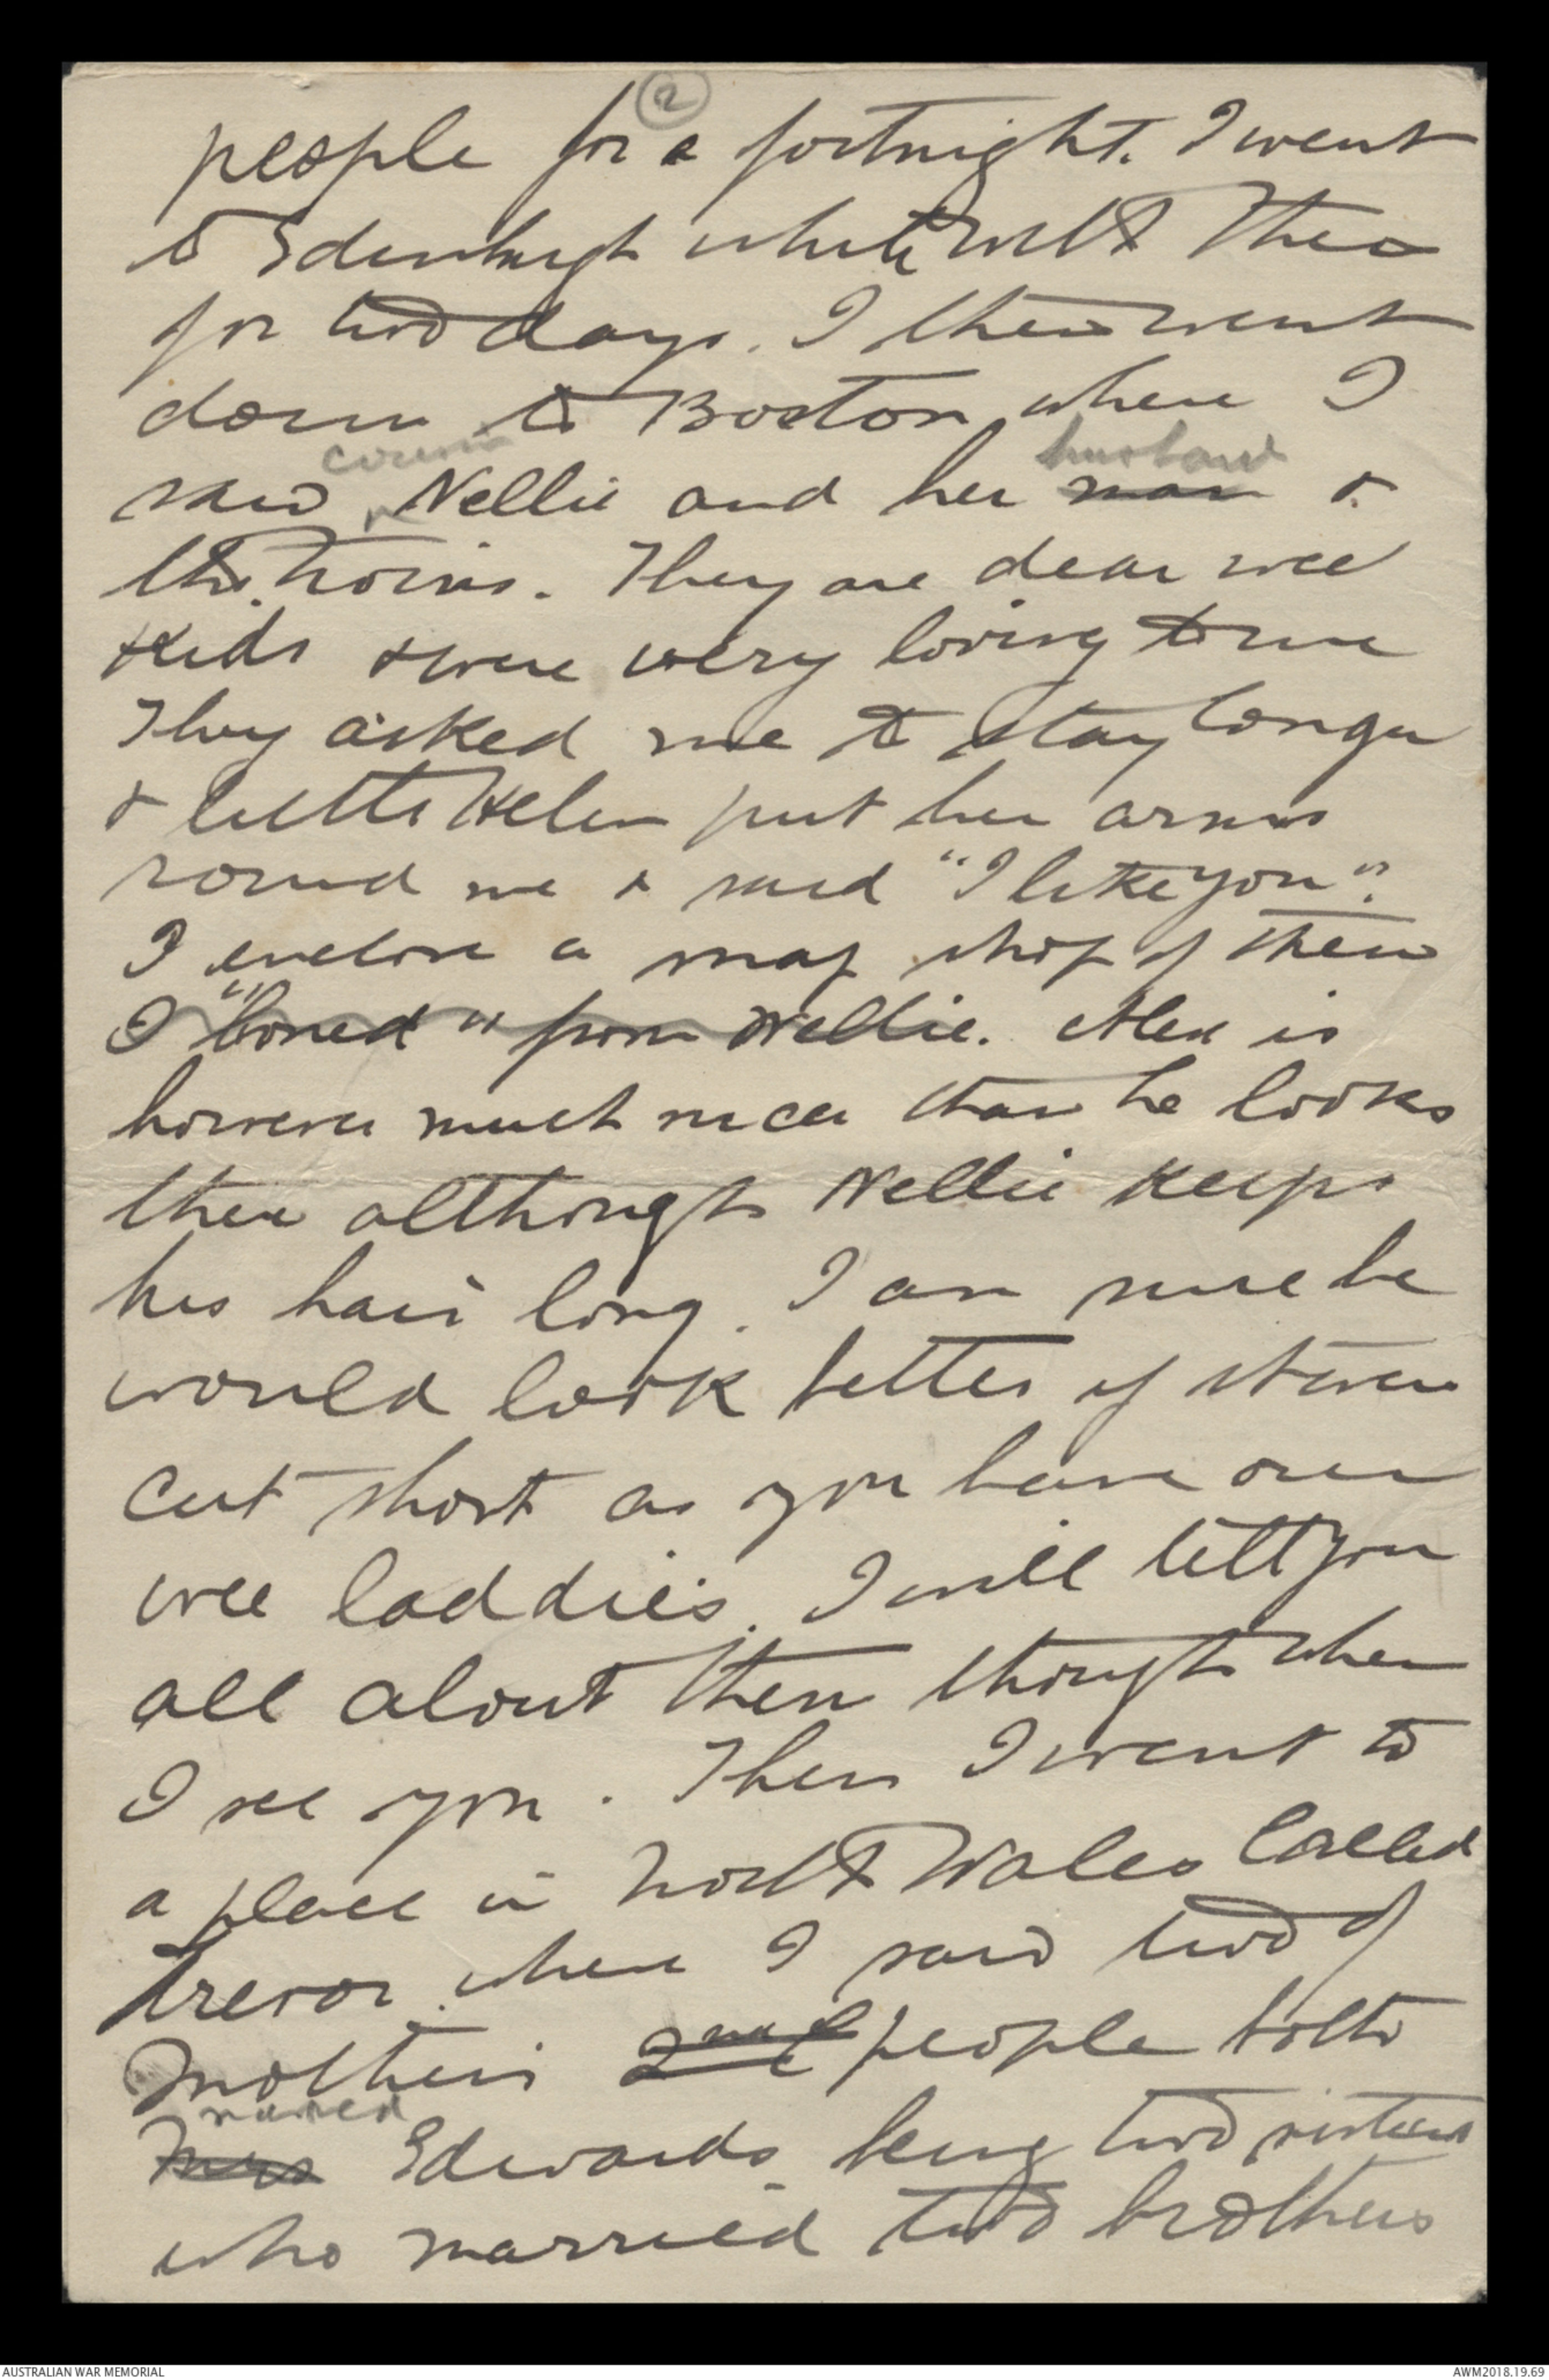 2
people for a fortnight. I went
to Edinburgh while with them
for two days. I then went
down to Boston where I
cousin husband
saw Nellie and her man &
the twins. They are dear wee
kids & were very loving to me
They asked me to stay longer
& little Helen put her arms
round me & said "I like you".
I enclose a snap shop of them
I "boned" from Nellie. Alex is
however much nicer than he looks
there although Nellie keeps
his hair long. I am sure he
would look better if it were
cut short as you have our
wee laddies. I will tell you
all about them though when
I see you. Then I went to
a place in North Wales called
Trevor where I saw two of
Mother's 2nd people both
named
Mrs Edwards being two sisters
who married two brothers
AUSTRALIAN WAR MEMORIAL AWM2018.19.69